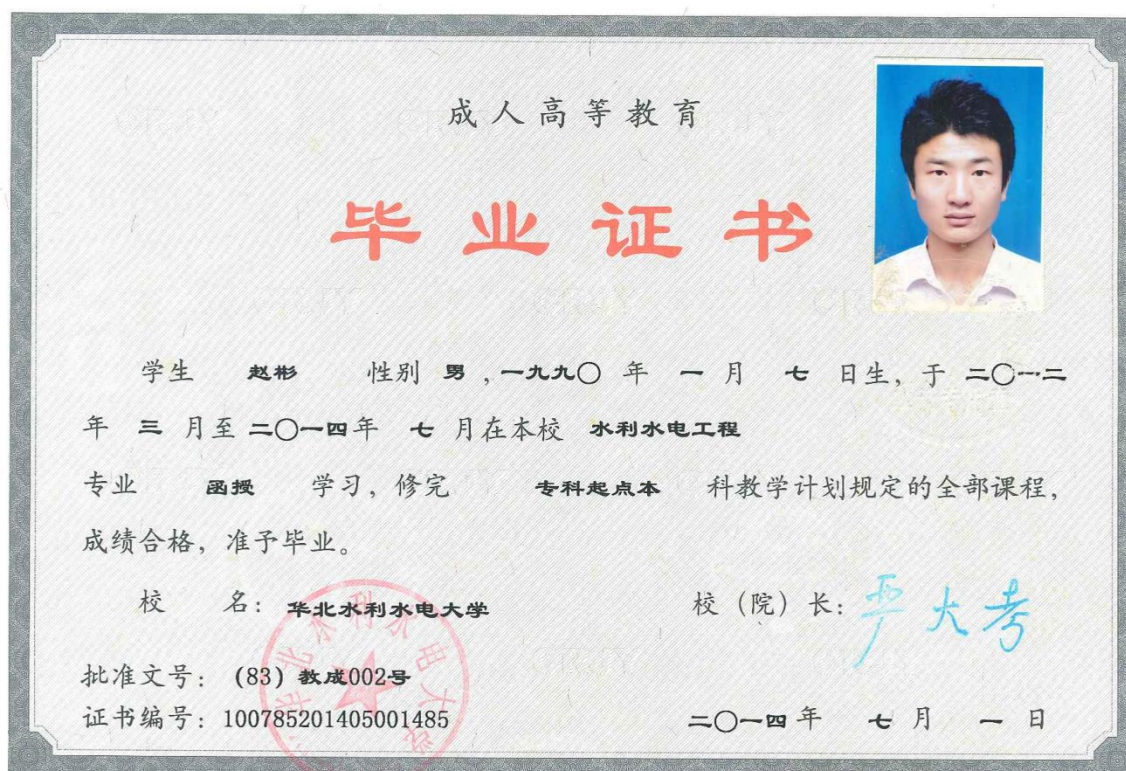 成人高等教育
毕业证书
学生 赵彬 性别 男 ,一九九〇 年 一 月 七 日生, 于 二〇一二
年 三 月至 二〇一四年 七 月在本校 水利水电工程
专业 函授 学习, 修完 专科起点本 科教学计划规定的全部课程,
成绩合格, 准予毕业。
校 名: 华北水利水电大学
校（院）长: 严大考
批准文号: (83) 教成002号
证书编号: 100785201405001485
二〇一四年 七 月 一 日
华北水利水电大学